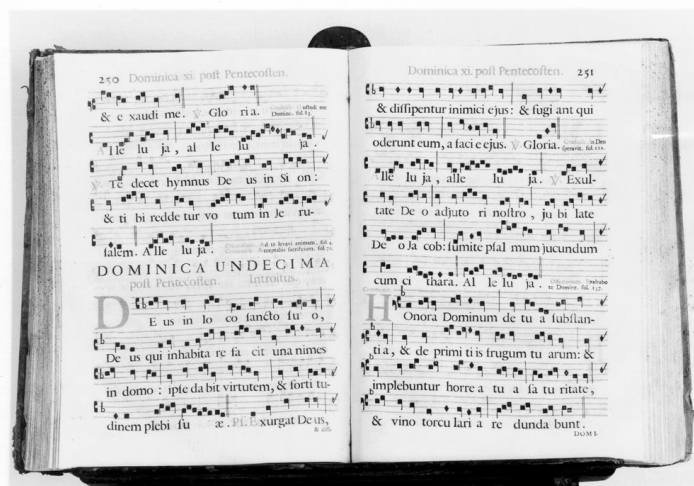 250 Dominica xi. post Pentecosten.
& e xaudi me. ℣. Glo ria. Custodi me
Domine. fol. 83.
Alle lu ja, al le lu ja.
℣. Te decet hymnus De us in Si on:
& ti bi redde tur vo tum in Je ru-
salem. Alle lu ja. Ad te levavi animum. fol. 4.
acceptabis sacrificium. fol. 70.
DOMINICA UNDECIMA
post Pentecosten. Introitus.
DE us in lo co sancto su o,
De us qui inhabita re fa cit una nimes
in domo: ipse da bit virtutem, & forti tu-
dinem plebi su æ. Ps. Exurgat De us,
& dis-
Dominica xi. post Pentecosten. 251
& dissipentur inimici ejus: & fugi ant qui
oderunt eum, a faci e ejus. ℣. Gloria. in Deo
speravit. fol.
Alle lu ja, alle lu ja. ℣. Exul-
tate De o adjuto ri nostro, ju bi late
De o Ja cob: sumite psal mum jucundum
cum ci thara. Al le lu ja. Offertorium. Exaltabo
te Domine. fol. 137.
HOnora Dominum de tu a substan-
ti a, & de primi ti is frugum tu arum: &
implebuntur horre a tu a sa tu ritate,
& vino torcu lari a re dunda bunt.
DOMI-